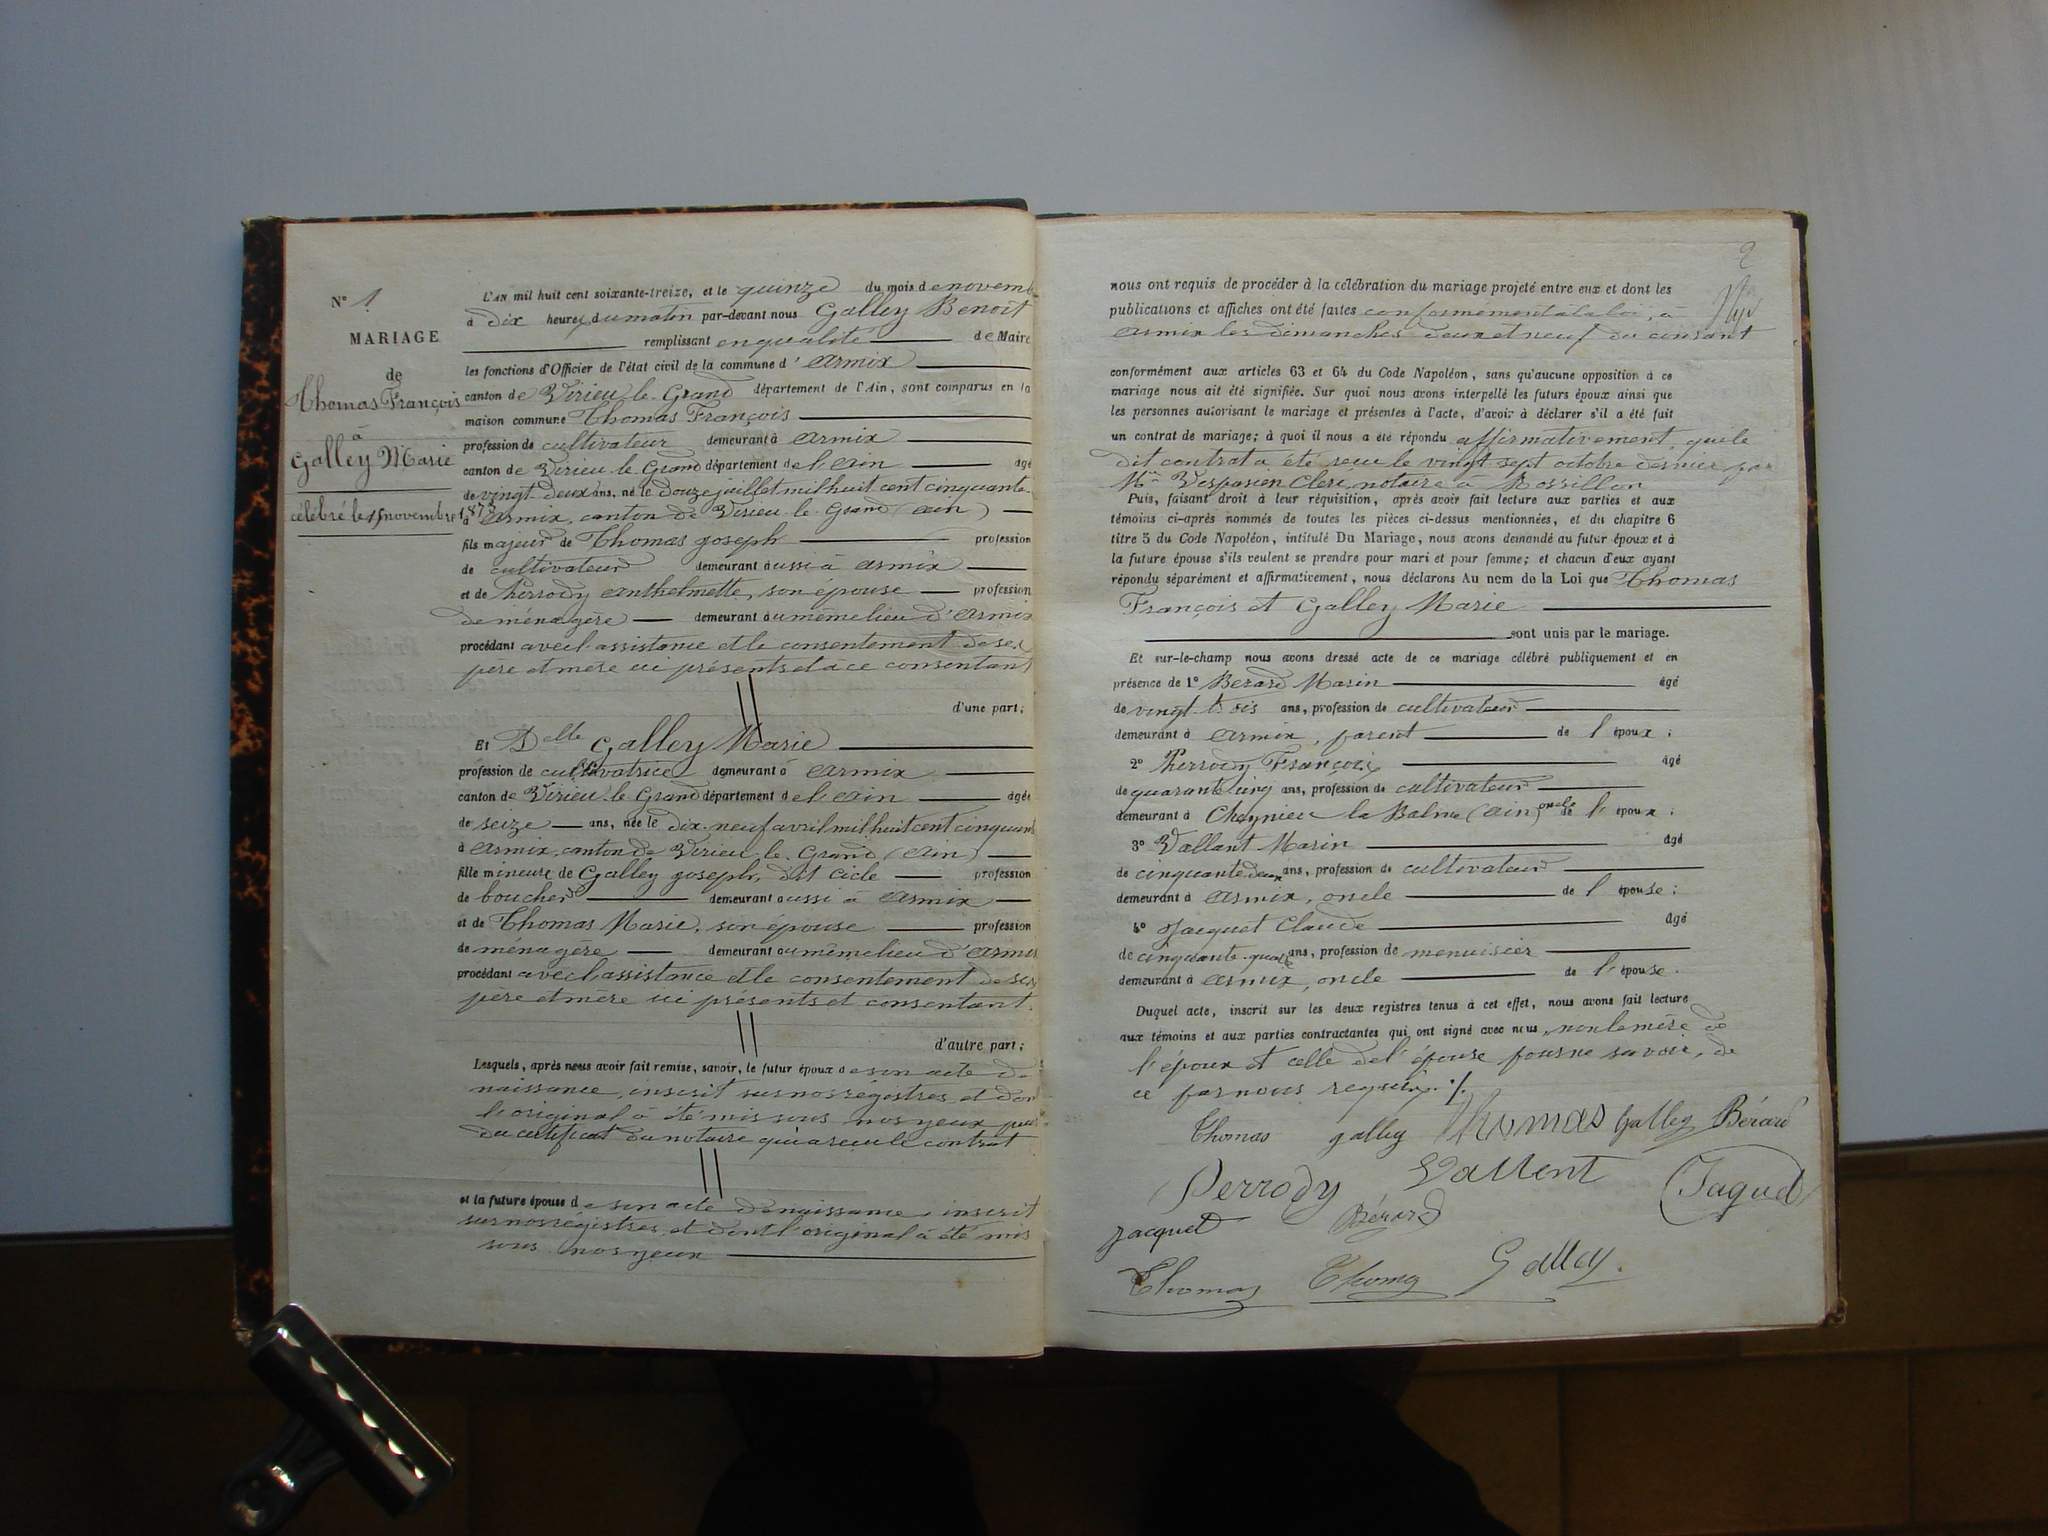 N° 1
MARIAGE
de
Thomas François
à
Galley Marie
célébré le 15 novembre 1873
L'AN mil huit cent soixante-treize, et le quinze du mois de novemb
à dix heures du matin par-devant nous Galley Benoît
remplissant en qualité de Maire
les fonctions d'Officier de l'état civil de la commune d'Armix
canton de Virieu-le-Grand département de l'Ain, sont comparus en la
maison commune Thomas François
profession de cultivateur demeurant à Armix
canton de Virieu-le-Grand département de l'Ain âgé
de vingt-deux ans, né le douze juillet mil huit cent cinquante-
à Armix, canton de Virieu-le-Grand (Ain)
fils majeur de Thomas Joseph profession
de cultivateur demeurant aussi à Armix
et de Perrody Anthelmette, son épouse profession
de ménagère demeurant au même lieu d'Armix
procédant avec l'assistance et le consentement de ses
père et mère ici présents et à ce consentant
d'une part;
Et Delle Galley Marie
profession de cultivatrice demeurant à Armix
canton de Virieu-le-Grand département de l'Ain âgée
de seize ans, née le dix-neuf avril mil huit cent cinquant
à Armix, canton de Virieu-le-Grand (Ain)
fille mineure de Galley Joseph, dit Cicle profession
de boucher demeurant aussi à Armix
et de Thomas Marie, son épouse profession
de ménagère demeurant au même lieu d'Armix
procédant avec l'assistance et le consentement de ses
père et mère ici présents et consentant.
d'autre part;
Lesquels, après nous avoir fait remise, savoir, le futur époux de son acte de
naissance, inscrit sur nos régistres, et dont
l'original à été mis sous nos yeux puis
du certificat du notaire qui a reçu le contrat
et la future épouse de son acte de naissance, inscrit
sur nos régistres, et dont l'original à été mis
sous nos yeux
2
nous ont requis de procéder à la célébration du mariage projeté entre eux et dont les
publications et affiches ont été faites conformément à la loi, à
Armix les dimanches deux et neuf du courant
conformément aux articles 63 et 64 du Code Napoléon, sans qu'aucune opposition à ce
mariage nous ait été signifiée. Sur quoi nous avons interpellé les futurs époux ainsi que
les personnes autorisant le mariage et présentes à l'acte, d'avoir à déclarer s'il a été fait
un contrat de mariage; à quoi il nous a été répondu affirmativement, que le
dit contrat a été reçu le vingt-sept octobre dernier par
Me Vespasien Clerc, notaire à Rossillon
Puis, faisant droit à leur réquisition, après avoir fait lecture aux parties et aux
témoins ci-après nommés de toutes les pièces ci-dessus mentionnées, et du chapitre 6
titre 5 du Code Napoléon, intitulé Du Mariage, nous avons demandé au futur époux et à
la future épouse s'ils veulent se prendre pour mari et pour femme; et chacun d'eux ayant
répondu séparément et affirmativement, nous déclarons Au nem de la Loi que Thomas
François et Galley Marie
sont unis par le mariage.
Et sur-le-champ nous avons dressé acte de ce mariage célébré publiquement et en
présence de 1° Berard Marin âgé
de vingt-trois ans, profession de cultivateur
demeurant à Armix, parent de l'époux;
2° Perrody François âgé
de quarante cinq ans, profession de cultivateur
demeurant à Cheynieu la Balme (Ain) oncle de l'époux;
3° Vallant Marin âgé
de cinquante deux ans, profession de cultivateur
demeurant à Armix, oncle de l'épouse;
4° Jacquet Claude âgé
de cinquante-quatre ans, profession de menuisier
demeurant à Armix, oncle de l'épouse.
Duquel acte, inscrit sur les deux registres tenus à cet effet, nous avons fait lecture
aux témoins et aux parties contractantes qui ont signé avec nous, non la mère de
l'époux et celle de l'épouse pour ne savoir, de
ce par nous requis. ./.
Thomas galley Thomas Galley Bérard
Perrody Vallent Jaquet
Jacquet Bérard
Thomas Thomas Galley.